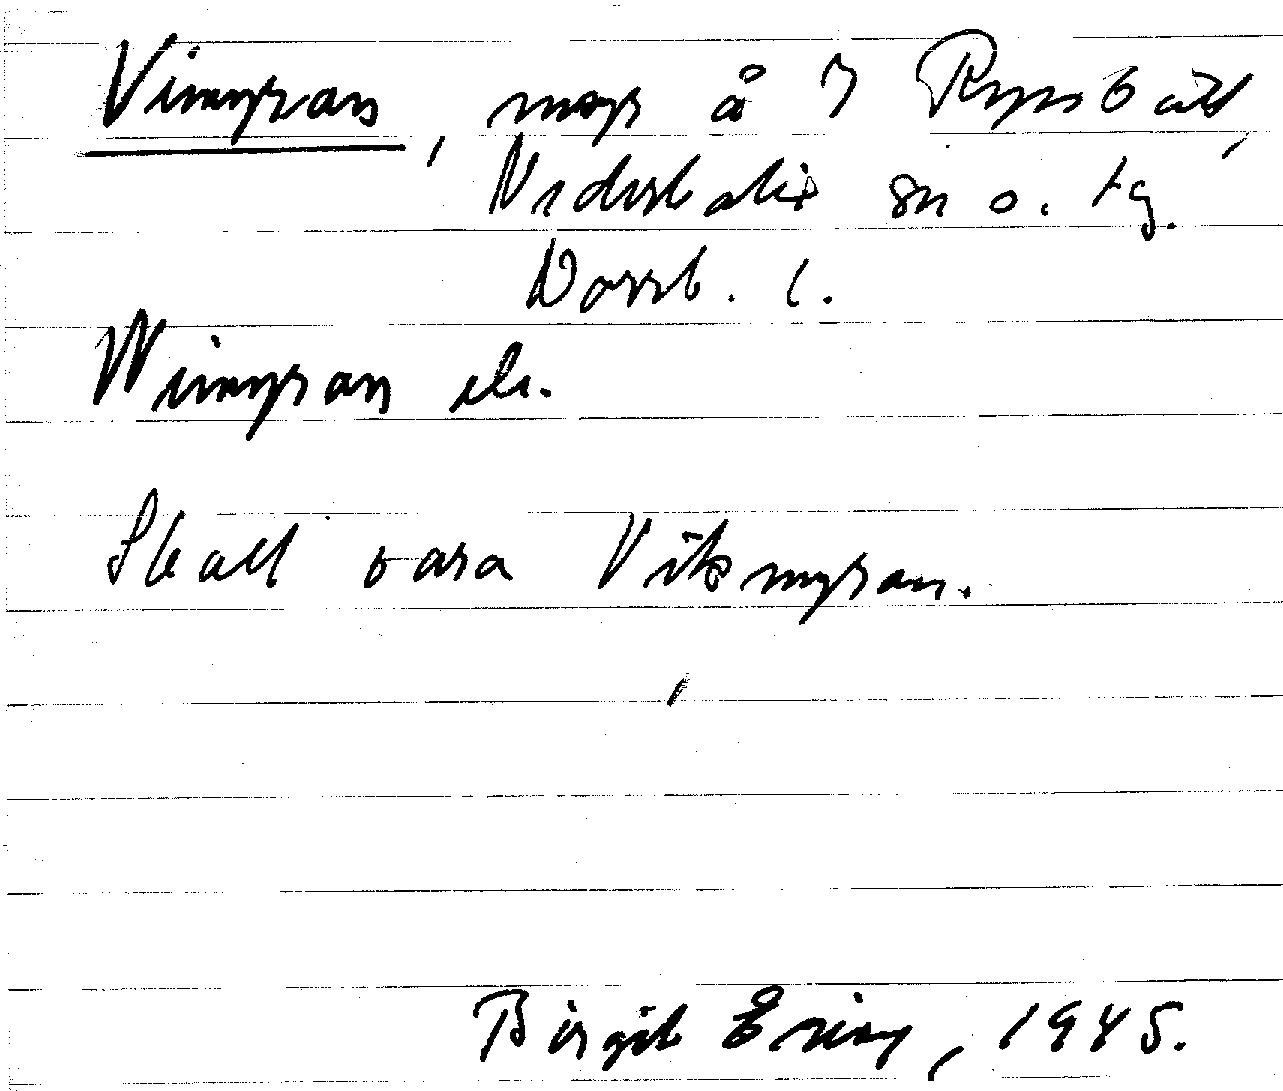 Vimyran, myr å 7 Ryssbält,
Nederkalix sn o. tg.
Norrb. l.
Wimyran ek.
Skall vara Vikmyran.
Birgit , 1945.